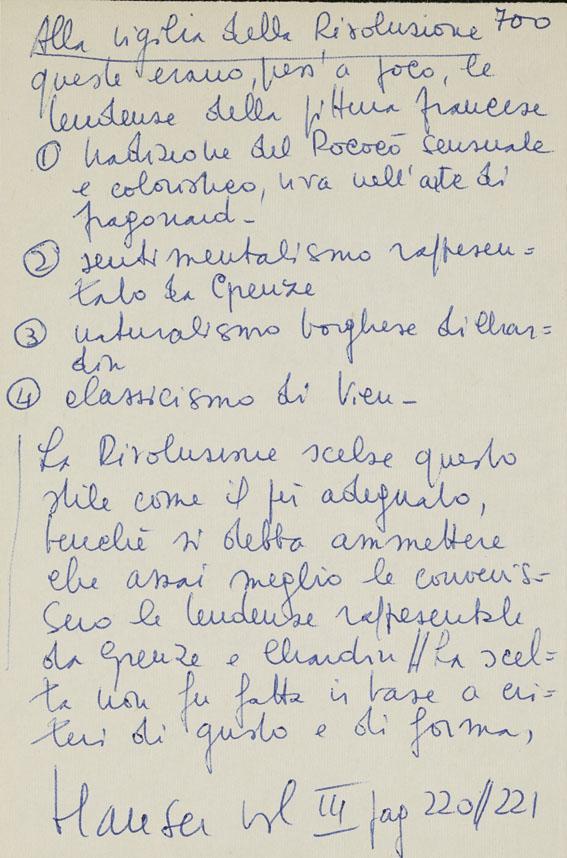 Alla vigilia della Rivoluzione 700
queste erano, press'a poco, le
tendenze della pittura francese
① tradizione del Rococò sensuale
e coloristico, viva nell'arte di
fragonard-
② sentimentalismo rappresen=
tato da Greuze
③ naturalismo borghese di Char=
din
④ classicismo di Vien-
La Rivoluzione scelse questo
stile come il più adeguato,
benchè si debba ammettere
che assai meglio le convenis=
sero le tendenze rappresentate
da Greuze e Chardin // La scel=
ta non fu fatta in base a cri=
teri di gusto e di forma,
Hauser vol III pag 220//221